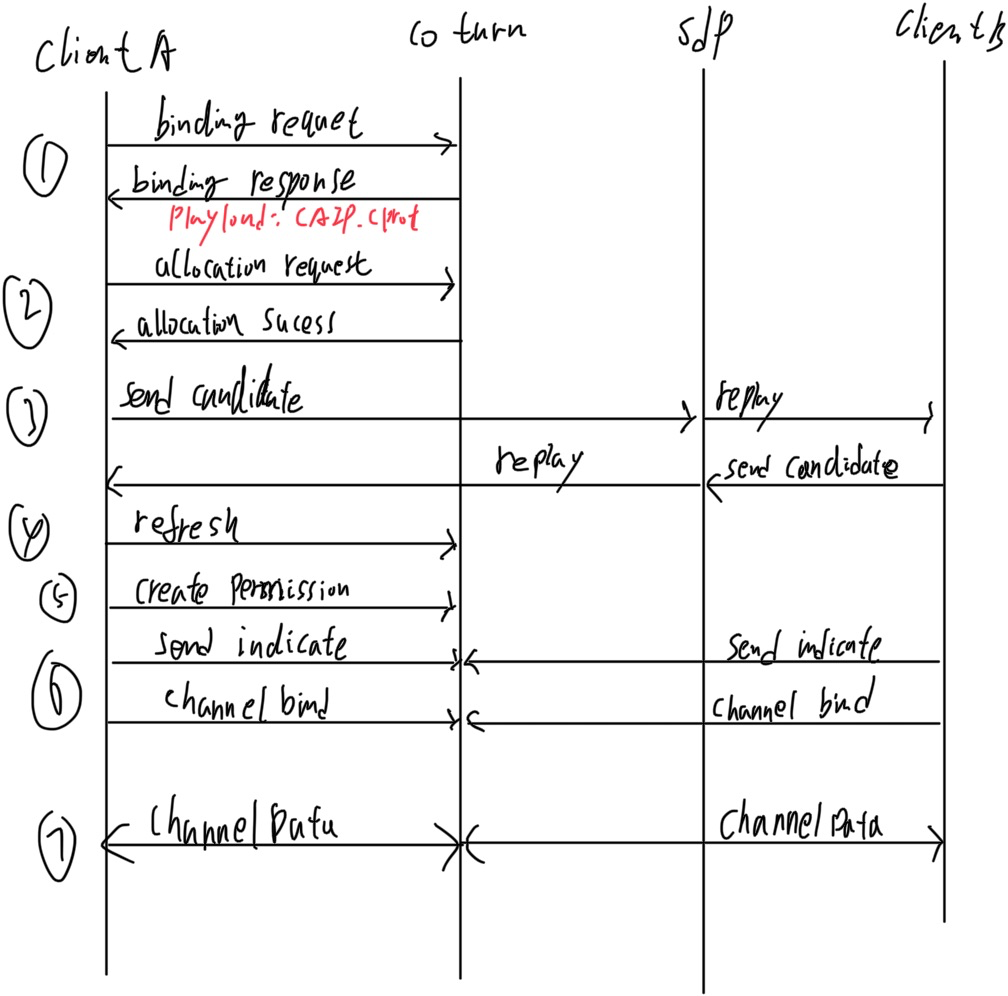 Client A
co turn
sdp
Client B
binding requet
①
binding response
playlond: CAIP. Cprot
allocation request
②
allocation sucess
③
send candidate
replay
replay
send candidate
④
refresh
⑤
create permission
send indicate
send indicate
⑥
channel bind
channel bind
⑦
Channel Data
Channel Data